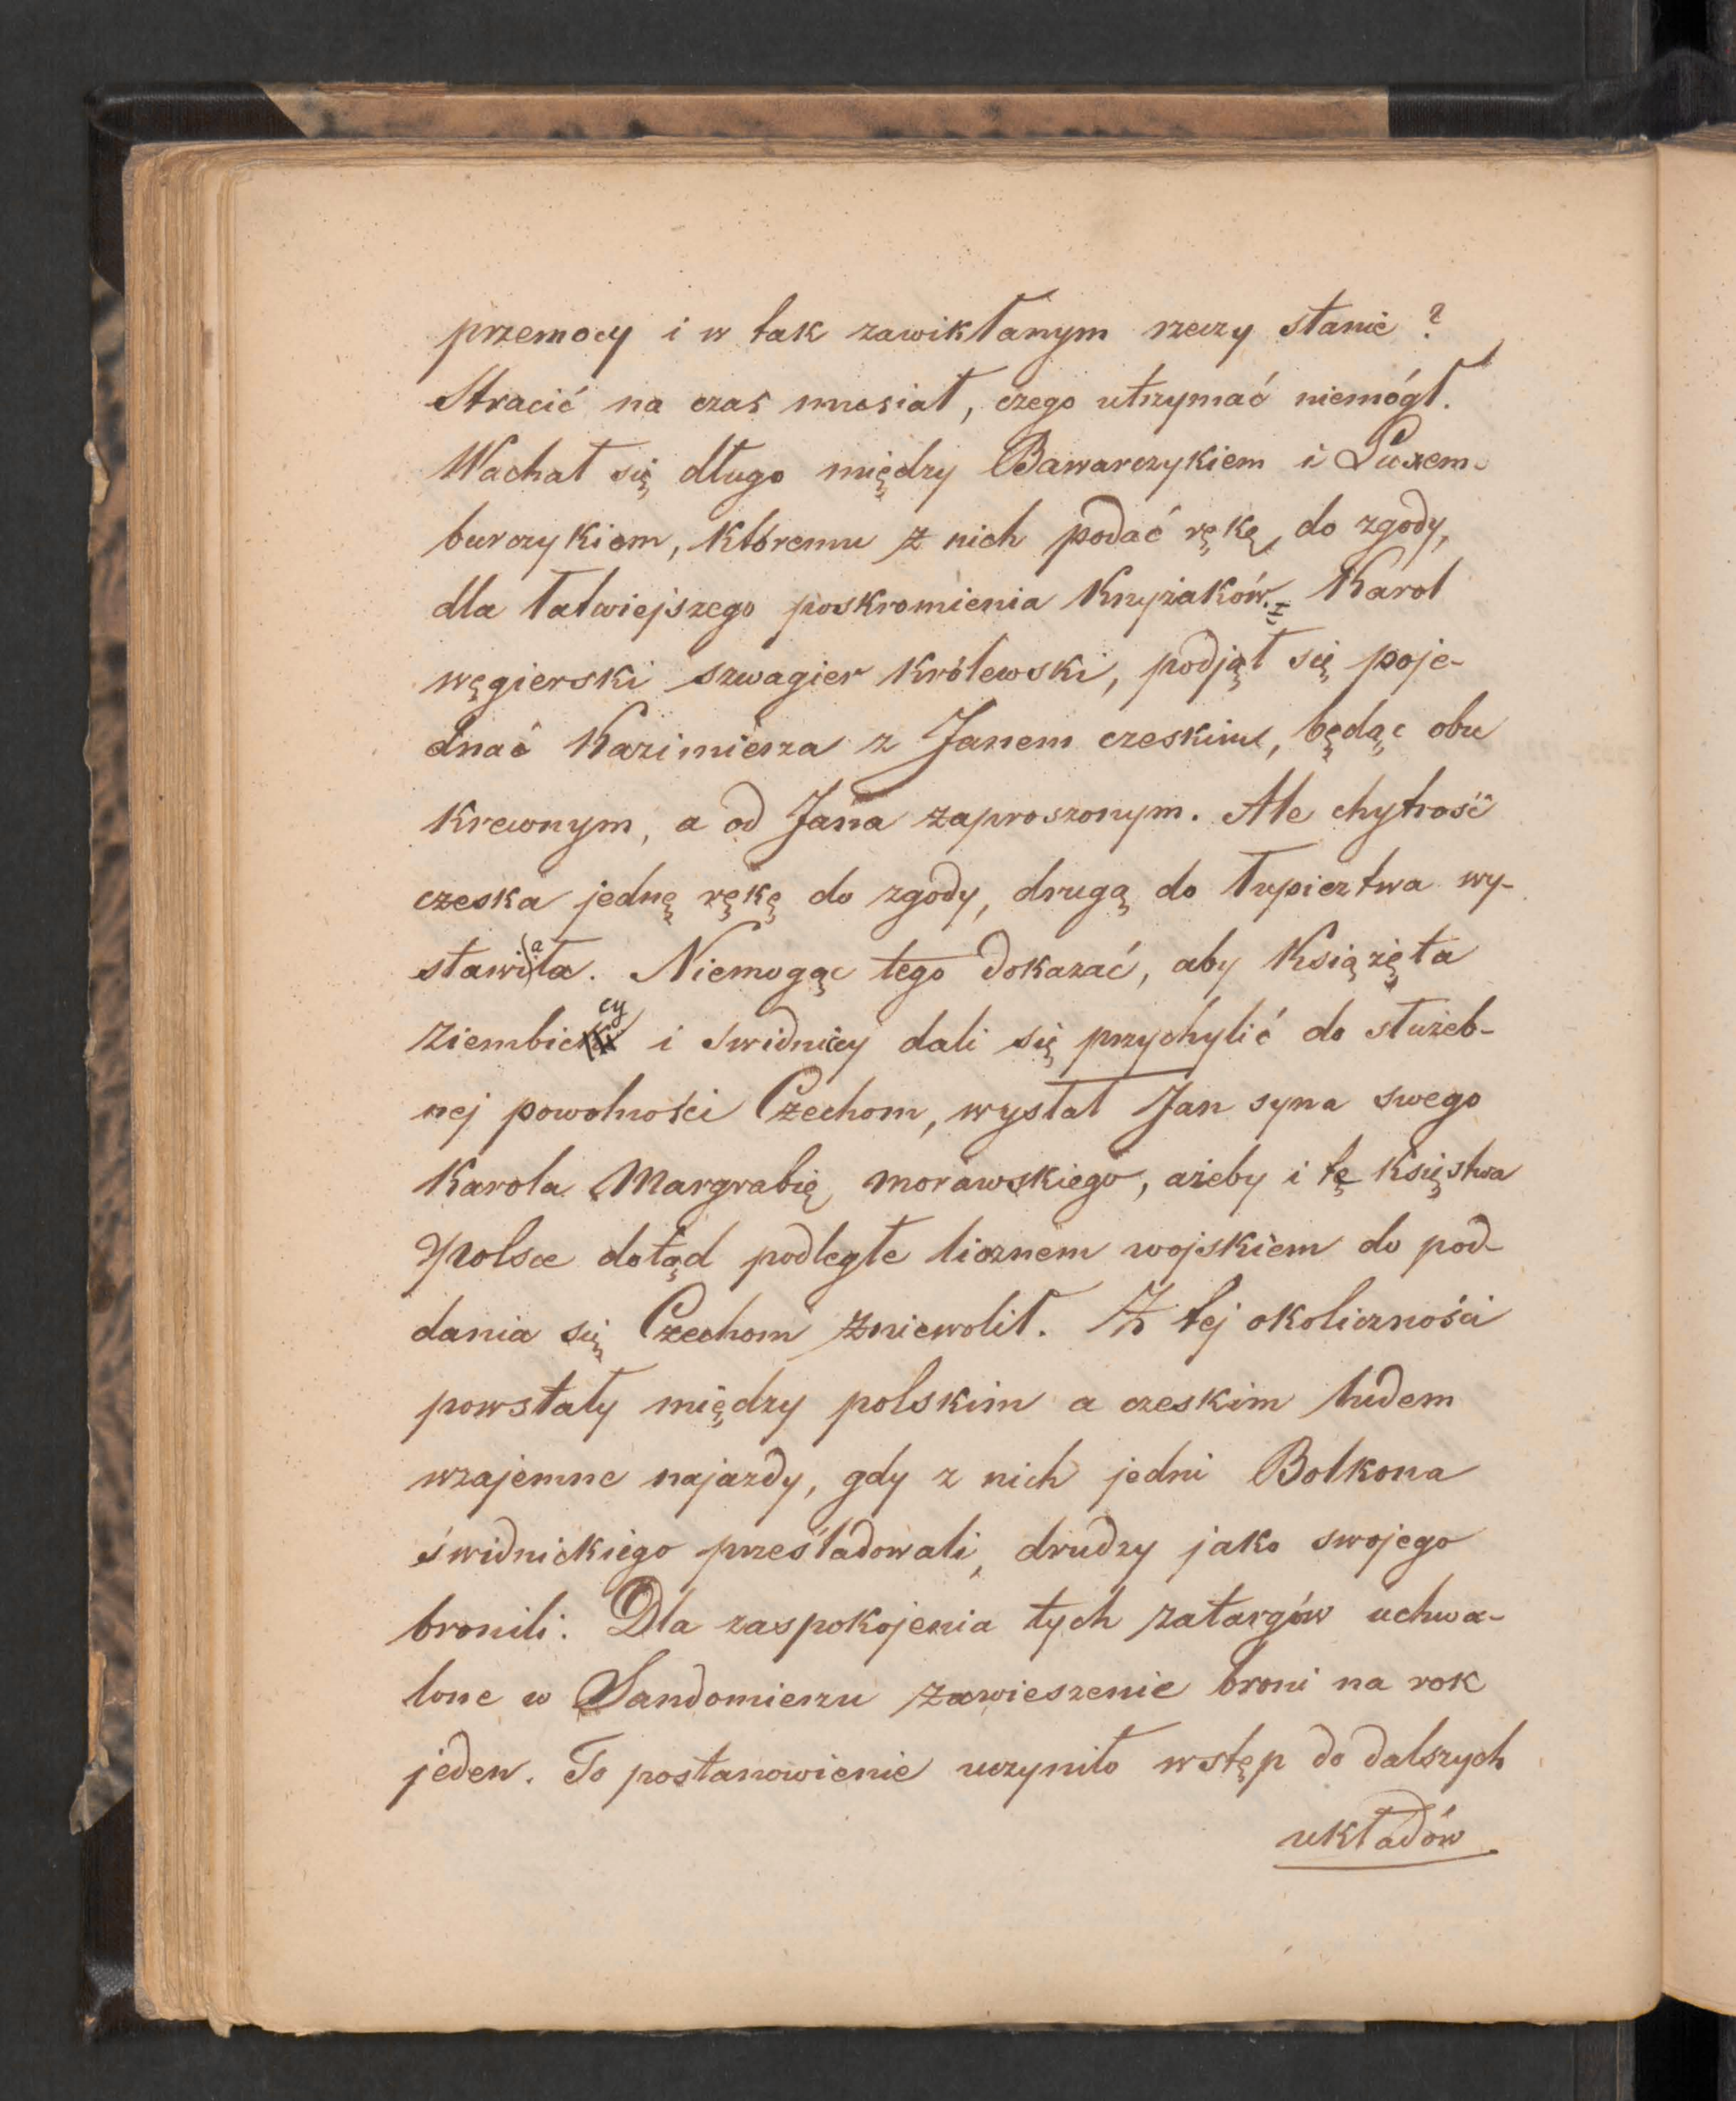 przemocy i w tak zawikłanym rzeczy stanie ?
Stracić na czas musiał, czego utrzymać niemógł.
Wachał się długo między Bawarczykiem i Luxem-
burczykiem, któremu z nich podać rękę do zgody,
dla łatwiejszego poskromienia Krzyżaków. Karol
węgierski szwagier królewski, podjął się poje-
dnać Kazimierza z Janem czeskim, będąc obu
krewnym, a od Jana zaproszonym. Ale chytrość
czeska jednę rękę do zgody, drugą do łupieztwa wy-
stawiała. Niemogąc tego dokazać, aby Książęta
ziembiccy i świdniccy dali się przychylić do służeb-
nej powolności Czechom, wysłał Jan syna swego
Karola Margrabię morawskiego, ażeby i tę księstwa
Polsce dotąd podległe licznem wojskiem do pod-
dania się Czechom zniewolił. Z tej okoliczności
powstały między polskim a czeskim ludem
wzajemne najazdy, gdy z nich jedni Bolkona
świdnickiego prześladowali, drudzy jako swojego
bronili. Dla zaspokojenia tych zatargów uchwa-
lone w Sandomierzu zawieszenie broni na rok
jeden. To postanowienie uczyniło wstęp do dalszych
układów